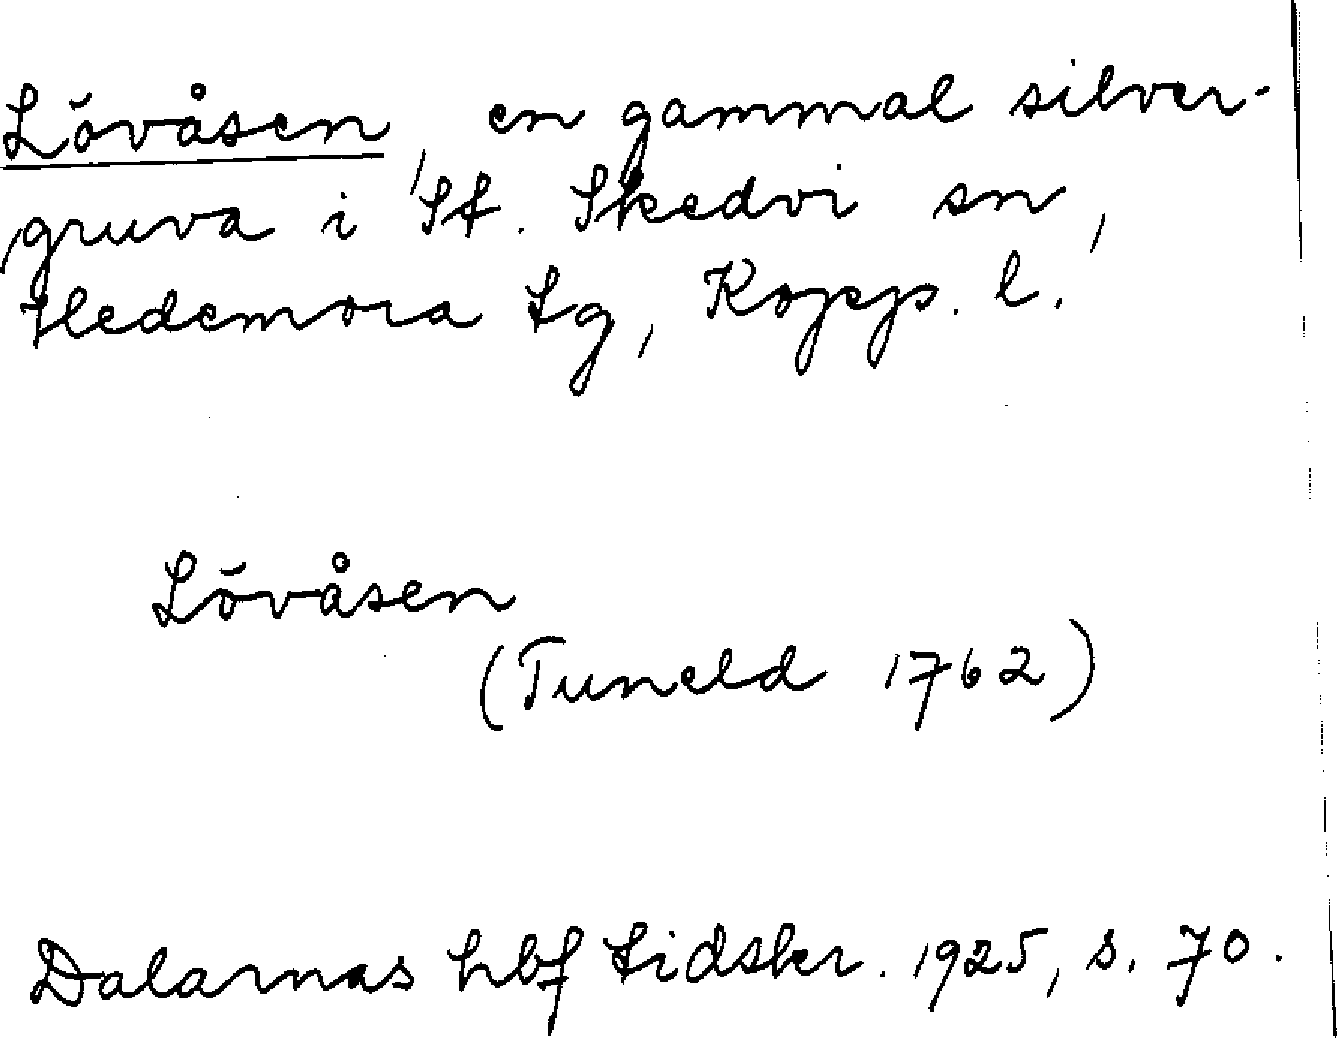 Lövåsen, en gammal silver-
gruva i St. Skedvi sn,
Hedemora tg, Kopp. l.
Lövåsen
(Tuneld 1762)
Dalarnas hbf tidskr. 1925, s. 70.